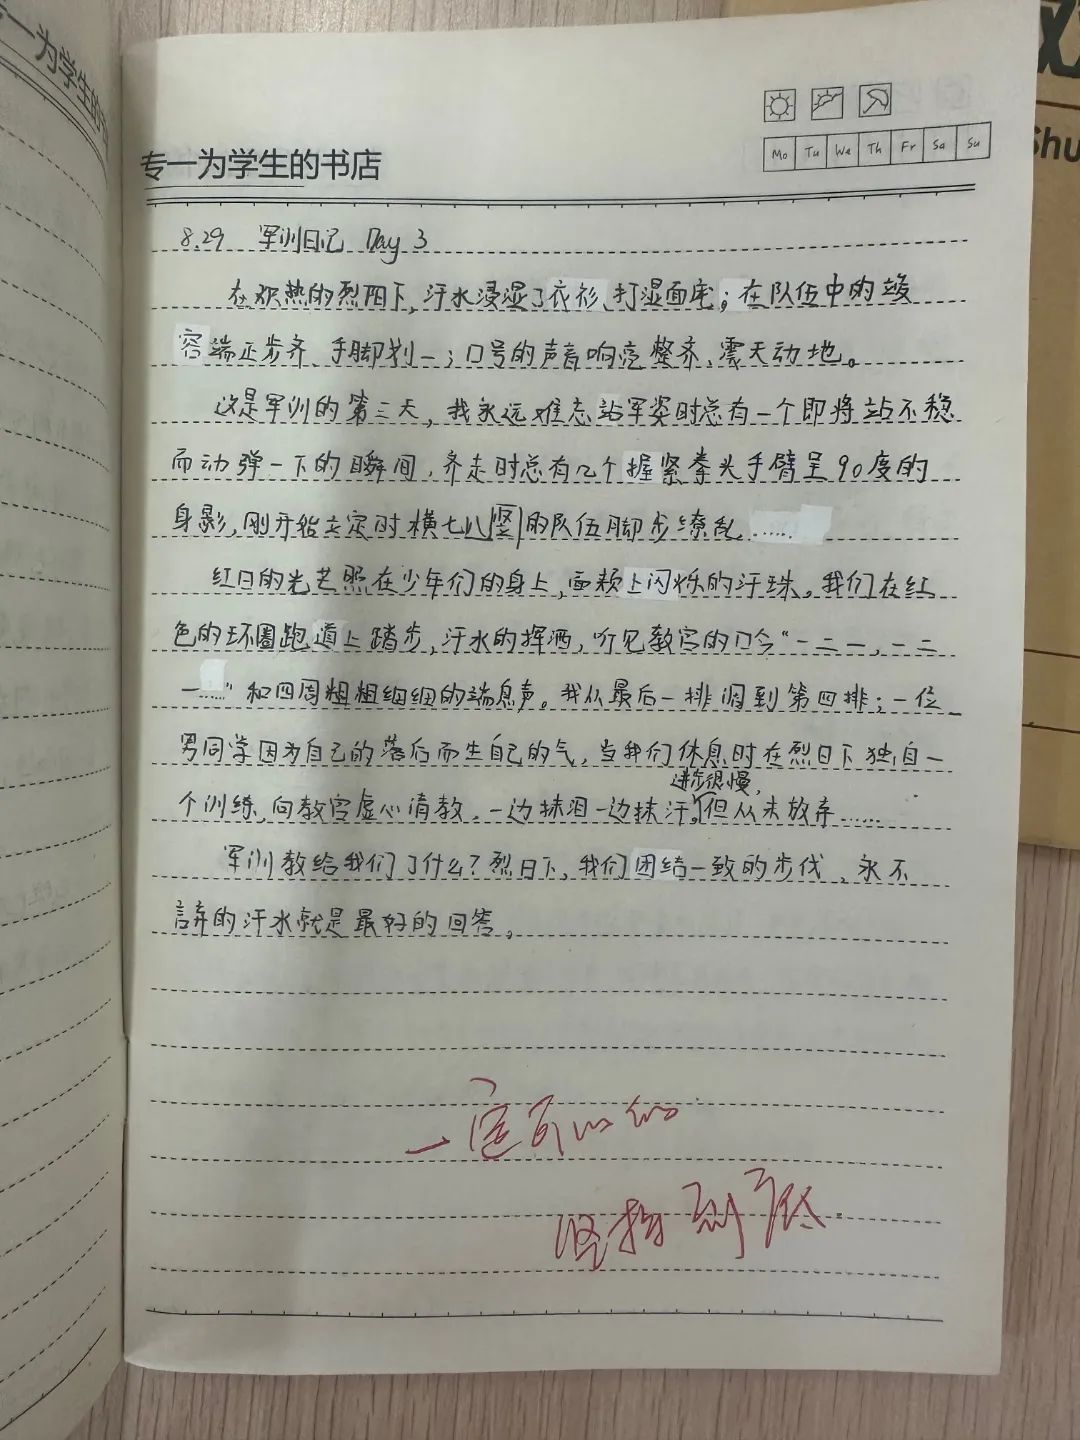 一为学生的
专一为学生的书店
Mo Tu We Th Fr Sa Su
Shu
8.29 军训日记 Day 3
在炽热的烈阳下,汗水浸湿了衣衫、打湿面庞;在队伍中的
容端正步齐、手脚划一;口号的声音响亮整齐、震天动地。
这是军训的第三天,我永远难忘站军姿时总有一个即将站不稳
而动弹一下的瞬间,齐走时总有几个握紧拳头手臂呈90度的
身影,刚开始立定时横七八竖的队伍脚步缭乱……
红日的光芒照在少年们的身上,面颊上闪烁的汗珠。我们在红
色的环圈跑道上踏步,汗水的挥洒,听见教官的口令“一二一,一二
一……”和四周粗粗细细的喘息声。我从最后一排调到第四排;一位
男同学因为自己的落后而生自己的气,当我们休息时在烈日下独自一
进步很慢,
个训练,向教官虚心请教,一边抹泪一边抹汗,但从未放弃……
军训教给我们了什么?烈日下,我们团结一致的步伐,永不
言弃的汗水就是最好的回答。
一定可以的
坚持到底.